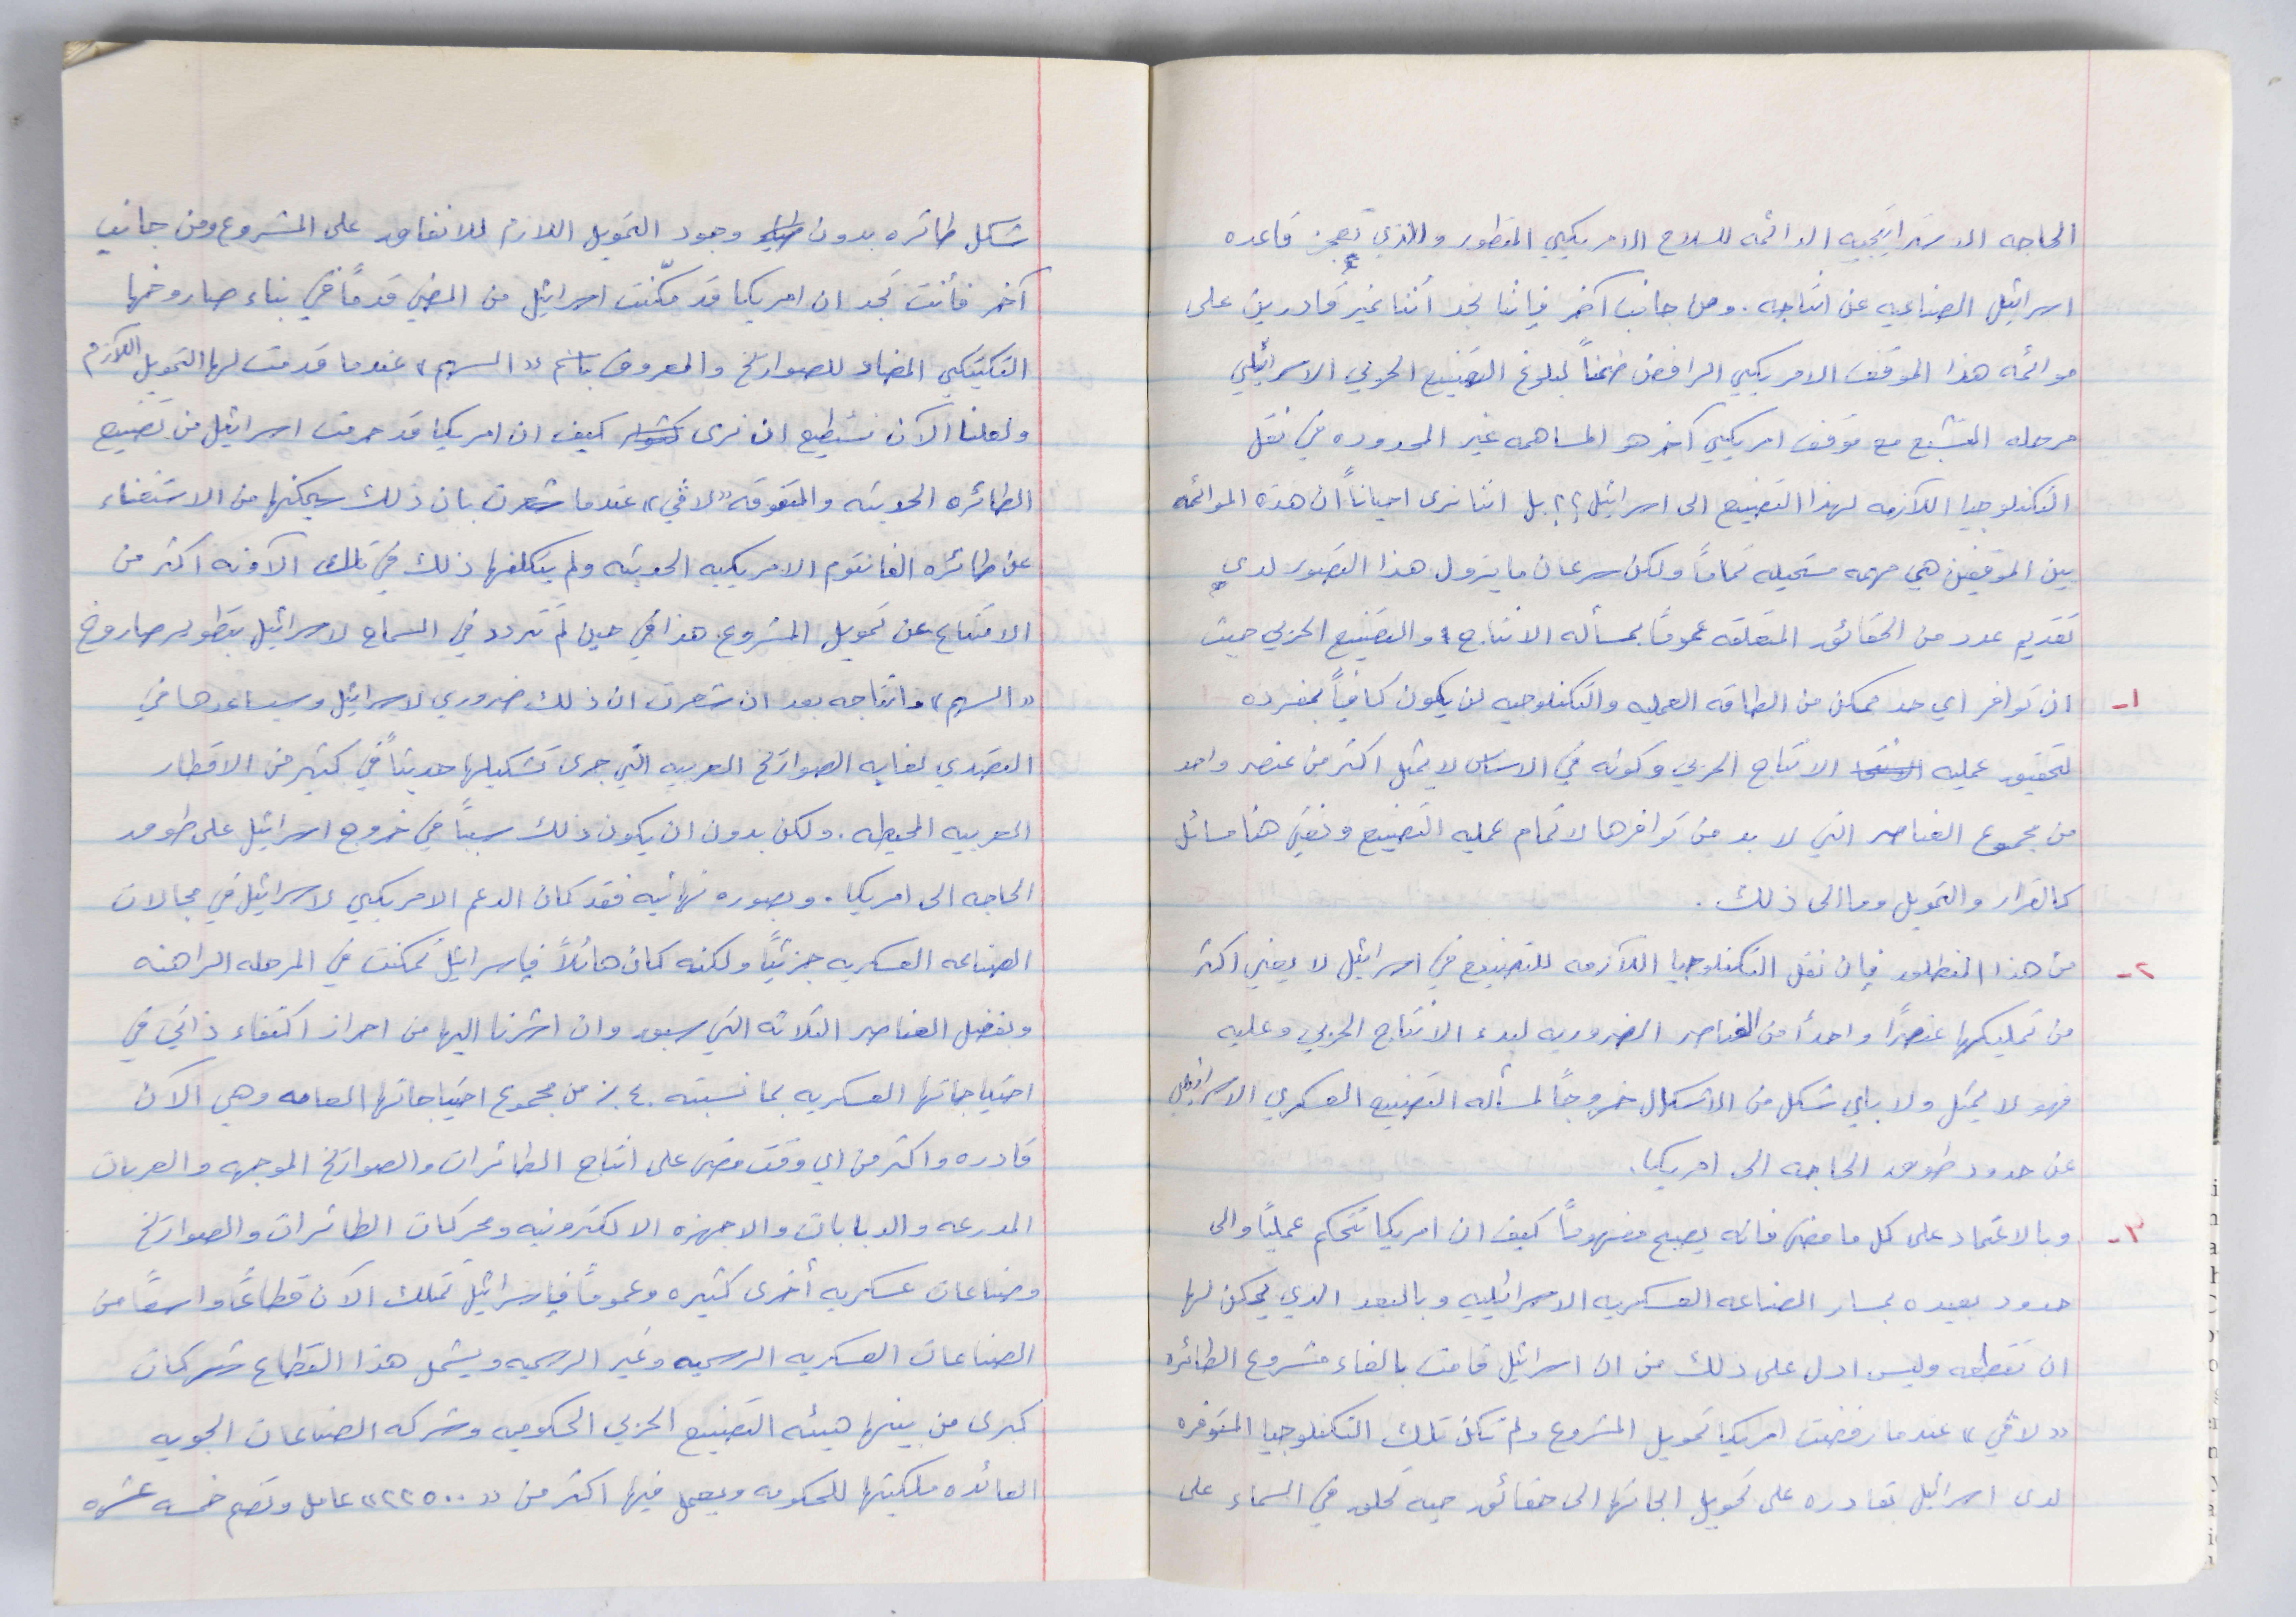 الحاجه الاستراتيجيه الدائمه للسلاح الامريكي المتطور والذي تعجز قاعده
اسرائيل الصناعيه عن انتاجه. ومن جانب آخر فإننا نجد أننا غير قادرين على
موائمه هذا الموقف الامريكي الرافض ضمناً لبلوغ التصنيع الحربي الاسرائيلي
مرحله التشبع مع موقف امريكي آخر هو المساهمه غير المحدوده في نقل
التكنلوجيا اللآزمه لهذا التصنيع الى اسرائيل؟؟ بل اننا نرى احياناً ان هذه الموائمه
بين الموقفين هي مهمه مستحيله تماماً ولكن سرعان ما يزول هذا التصور لدى
تقديم عدد من الحقائق المتعلقه عموماً بمسأله الانتاج والتصنيع الحربي حيث
١- ان توافر اي حد ممكن من الطاقه العمليه والتكنلوجيه لن يكون كافياً بمفرده
لتحقيق عمليه الانتاج الحربي وكونه في الاساس لا يمثل اكثر من عنصر واحد
من مجموع العناصر التي لا بد من توافرها لاتمام عمليه التصنيع ونعني هنا مسائل
كالقرار والتمويل وما الى ذلك.
٢- من هذا المنطلق فإن نقل التكنلوجيا اللآزمه للتصنيع في اسرائيل لا يعني اكثر
من تمليكها عنصراً واحداً من العناصر الضروريه لبدء الانتاج الحربي وعليه
فهو لا يمثل ولا باي شكل من الاشكال خروجاً لمسأله التصنيع العسكري الاسرائيلي
عن حدود طوق الحاجه الى امريكيا.
٣- وبالاعتماد على كل ما مضى فانه يصبح مفهوماً كيف ان امريكيا تتحكم عملياً والى
حدود بعيده بمسار الصناعه العسكريه الاسرائيليه وبالبعد الذي يمكن لها
ان تقطعه وليس ادل على ذلك من ان اسرائيل قامت بالغاء مشروع الطائره
«لاڤي» عندما رفضت امريكيا تمويل المشروع ولم تكن تلك التكنلوجيا المتوفره
لدى اسرائيل بقادره على تحويل ابحاثها الى حقائق حيه تحلق في السماء على
شكل طائره بدون وجود التمويل اللازم للانفاق على المشروع ومن جانب
آخر فأنت تجد ان امريكيا قد مكّنت اسرائيل من المضي قدماً في بناء صاروخها
التكتيكي المضاد للصواريخ والمعروف باسم «السهم» عندما قدمت لها التمويل اللآزم
ولعلنا الآن نستطيع ان نرى كيف ان امريكيا قد حرمت اسرائيل من تصنيع
الطائره الحديثه والمتفوقه «لاڤي» عندما شعرت بان ذلك سيمكنها من الاستغناء
عن طائره الفانتوم الامريكيه الحديثه ولم يتكلفها ذلك في تلك الآونه اكثر من
الامتناع عن تمويل المشروع. هذا في حين لم تتردد في السماح لاسرائيل بتطوير صاروخ
«السهم» وانتاجه بعد ان شعرت ان ذلك ضروري لاسرائيل وسيساعدها في
التصدي لغايه الصواريخ العربيه التي جرى تشكيلها حديثاً في كثير من الاقطار
العربيه المحيطه. ولكن بدون ان يكون ذلك سبباً في خروج اسرائيل على طوق
الحاجه الى امريكيا. وبصوره نهائيه فقد كان الدعم الامريكي لاسرائيل في مجالات
الصناعه العسكريه جزئياً ولكنه كان هائلاً فإسرائيل تمكنت في المرحله الراهنه
وبفضل العناصر الثلاثه التي سبق وان اشرنا اليها من احراز اكتفاء ذاتي في
احتياجاتها العسكريه بما نسبته ٤٠٪ من مجموع احتياجاتها العامه وهي الآن
قادره واكثر من اي وقت مضى على انتاج الطائرات والصواريخ الموجهه والعربات
المدرعه والدبابات والاجهزه الالكترونيه ومحركات الطائرات والصواريخ
وصناعات عسكريه أخرى كثيره وعموماً فإسرائيل تمتلك الآن قطاعاً واسعاً من
الصناعات العسكريه الرسميه وغير الرسميه ويشمل هذا القطاع شركات
كبرى من بينها هيئه التصنيع الحربي الحكوميه وشركه الصناعات الجويه
العائده ملكيتها للحكومه ويعمل فيها اكثر من «٢٢٥٠٠» عامل وتضم خمسه عشره